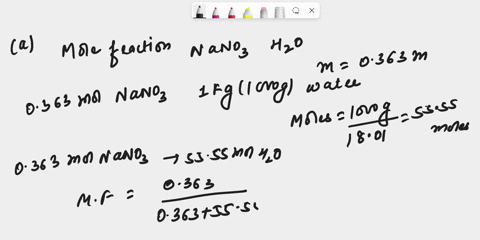 (a) Mole fraction NaNO3 H2O
m = 0.363 m
0.363 mol NaNO3 1 Kg (1000g) water
Moles = 1000g / 18.01 = 55.55 moles
0.363 mol NaNO3 → 55.55 mol H2O
M.F = 0.363 / 0.363+55.5